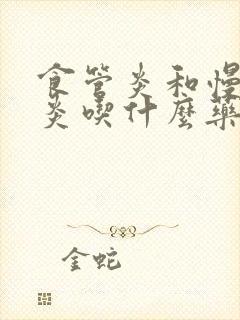 食管炎和慢
炎喫什麼藥
金蛇